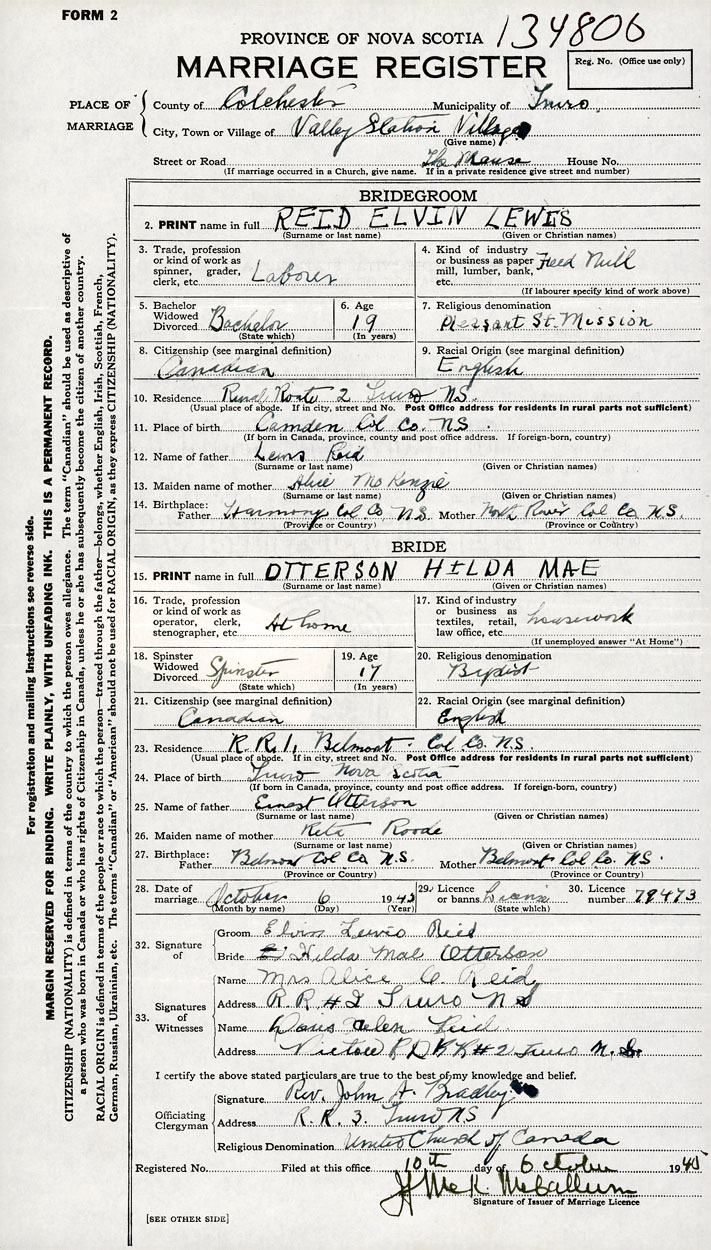 FORM 2
134806
PROVINCE OF NOVA SCOTIA
MARRIAGE REGISTER
Reg. No. (Office use only)
PLACE OF MARRIAGE
County of Colchester Municipality of Truro
City, Town or Village of Valley Station Village
(Give name)
Street or Road The Manse House No.
(If marriage occurred in a Church, give name. If in a private residence give street and number)
BRIDEGROOM
2. PRINT name in full REID ELVIN LEWIS
(Surname or last name) (Given or Christian names)
3. Trade, profession or kind of work as spinner, grader, clerk, etc. Laborer
4. Kind of industry or business as paper mill, lumber, bank, etc. Feed Mill
(If labourer specify kind of work above)
5. Bachelor Widowed Divorced Bachelor
(State which)
6. Age 19
(In years)
7. Religious denomination
Pleasant St. Mission
8. Citizenship (see marginal definition)
Canadian
9. Racial Origin (see marginal definition)
English
10. Residence Rural Route 2 Truro N.S.
(Usual place of abode. If in city, street and No. Post Office address for residents in rural parts not sufficient)
11. Place of birth Camden Col Co. N.S.
(If born in Canada, province, county and post office address. If foreign-born, country)
12. Name of father Lewis Reid
(Surname or last name) (Given or Christian names)
13. Maiden name of mother Alice McKenzie
(Surname or last name) (Given or Christian names)
14. Birthplace: Father Harmony Col. Co. N.S. Mother North River Col Co N.S.
(Province or Country) (Province or Country)
BRIDE
15. PRINT name in full OTTERSON HILDA MAE
(Surname or last name) (Given or Christian names)
16. Trade, profession or kind of work as operator, clerk, stenographer, etc. At home
17. Kind of industry or business as textiles, retail, law office, etc. housework
(If unemployed answer "At Home")
18. Spinster Widowed Divorced Spinster
(State which)
19. Age 17
(In years)
20. Religious denomination
Baptist
21. Citizenship (see marginal definition)
Canadian
22. Racial Origin (see marginal definition)
English
23. Residence R.R. 1, Belmont Col Co. N.S.
(Usual place of abode. If in city, street and No. Post Office address for residents in rural parts not sufficient)
24. Place of birth Truro Nova Scotia
(If born in Canada, province, county and post office address. If foreign-born, country)
25. Name of father Ernest Otterson
(Surname or last name) (Given or Christian names)
26. Maiden name of mother Reta Roode
(Surname or last name) (Given or Christian names)
27. Birthplace: Father Belmont Col Co N.S. Mother Belmont Col. Co. N.S.
(Province or Country) (Province or Country)
28. Date of marriage October 6 1945
(Month by name) (Day) (Year)
29. Licence or banns
(State which)
30. Licence number 79473
32. Signature of
Groom Elvin Lewis Reid
Bride Hilda Mae Otterson
33. Signatures of Witnesses
Name Mrs Alice C. Reid
Address R.R. #2 Truro N S
Name Helen Reid
Address R R #2 Truro N.S.
I certify the above stated particulars are true to the best of my knowledge and belief.
Officiating Clergyman
Signature Rev. John A. Bradley
Address R.R. 3. Truro NS
Religious Denomination United Church of Canada
Registered No. Filed at this office 10th day of October 1945
J McK. McCallum
Signature of Issuer of Marriage Licence
[SEE OTHER SIDE]
For registration and mailing Instructions see reverse side.
MARGIN RESERVED FOR BINDING. WRITE PLAINLY, WITH UNFADING INK. THIS IS A PERMANENT RECORD.
CITIZENSHIP (NATIONALITY) is defined in terms of the country to which the person owes allegiance. The term "Canadian" should be used as descriptive of
a person who was born in Canada or who has rights of Citizenship in Canada, unless he or she has subsequently become the citizen of another country.
RACIAL ORIGIN is defined in terms of the people or race to which the person—traced through the father—belongs, whether English, Irish, Scottish, French,
German, Russian, Ukrainian, etc. The terms "Canadian" or "American" should not be used for RACIAL ORIGIN, as they express CITIZENSHIP (NATIONALITY).